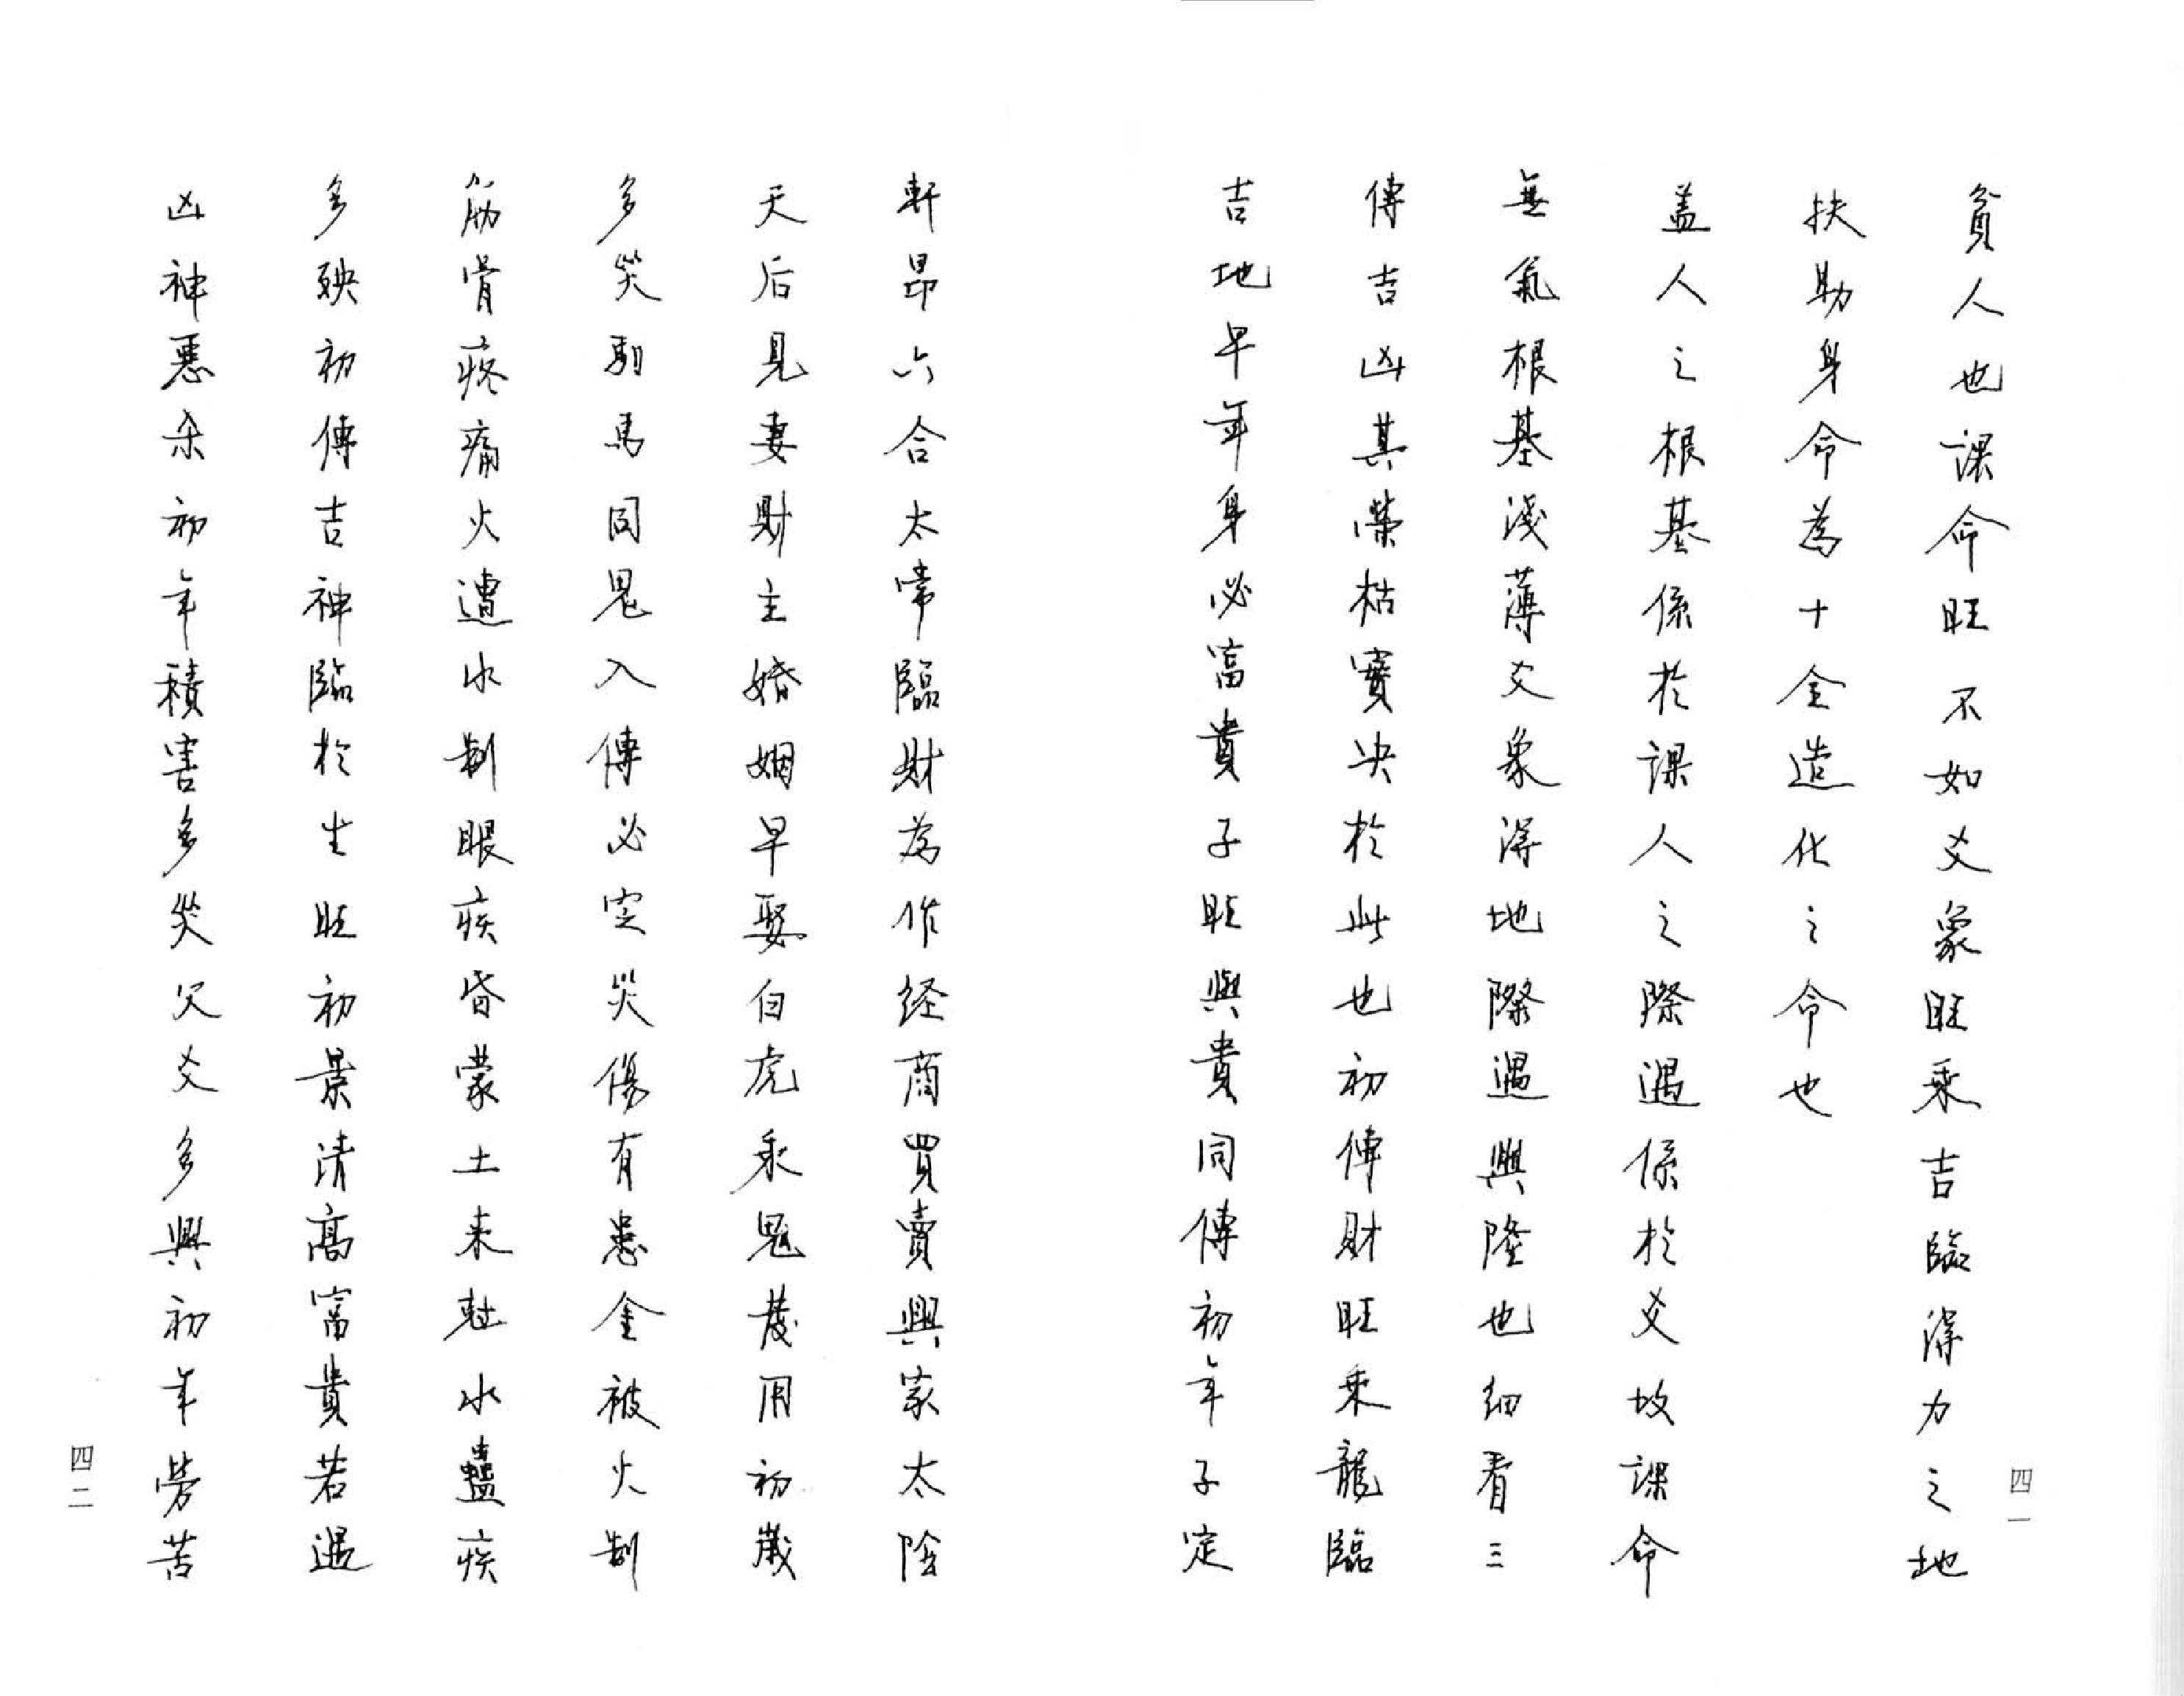 貧人也課命旺不如爻象旺乘吉臨得力之地
扶助身命為十全造化之命也
盖人之根基係於課人之際遇係於爻故課命
無氣根基淺薄爻象得地際遇興隆也細看三
傳吉凶其榮枯實決於此也初傳財旺乘龍臨
吉地早年身必富貴子旺與貴同傳初年子定
四一
軒昂六合太常臨財為作経商買賣興家太陰
天后見妻財主婚姻早娶白虎乘鬼發用初歲
多災馹馬同鬼入傳必定災傷有患金被火制
筋骨疼痛火遭水制眼疾昏蒙土来尅水蠱疾
多殃初傳吉神臨於生旺初景清高富貴若遇
凶神悪杀初年積害多災父爻多興初年勞苦
四二